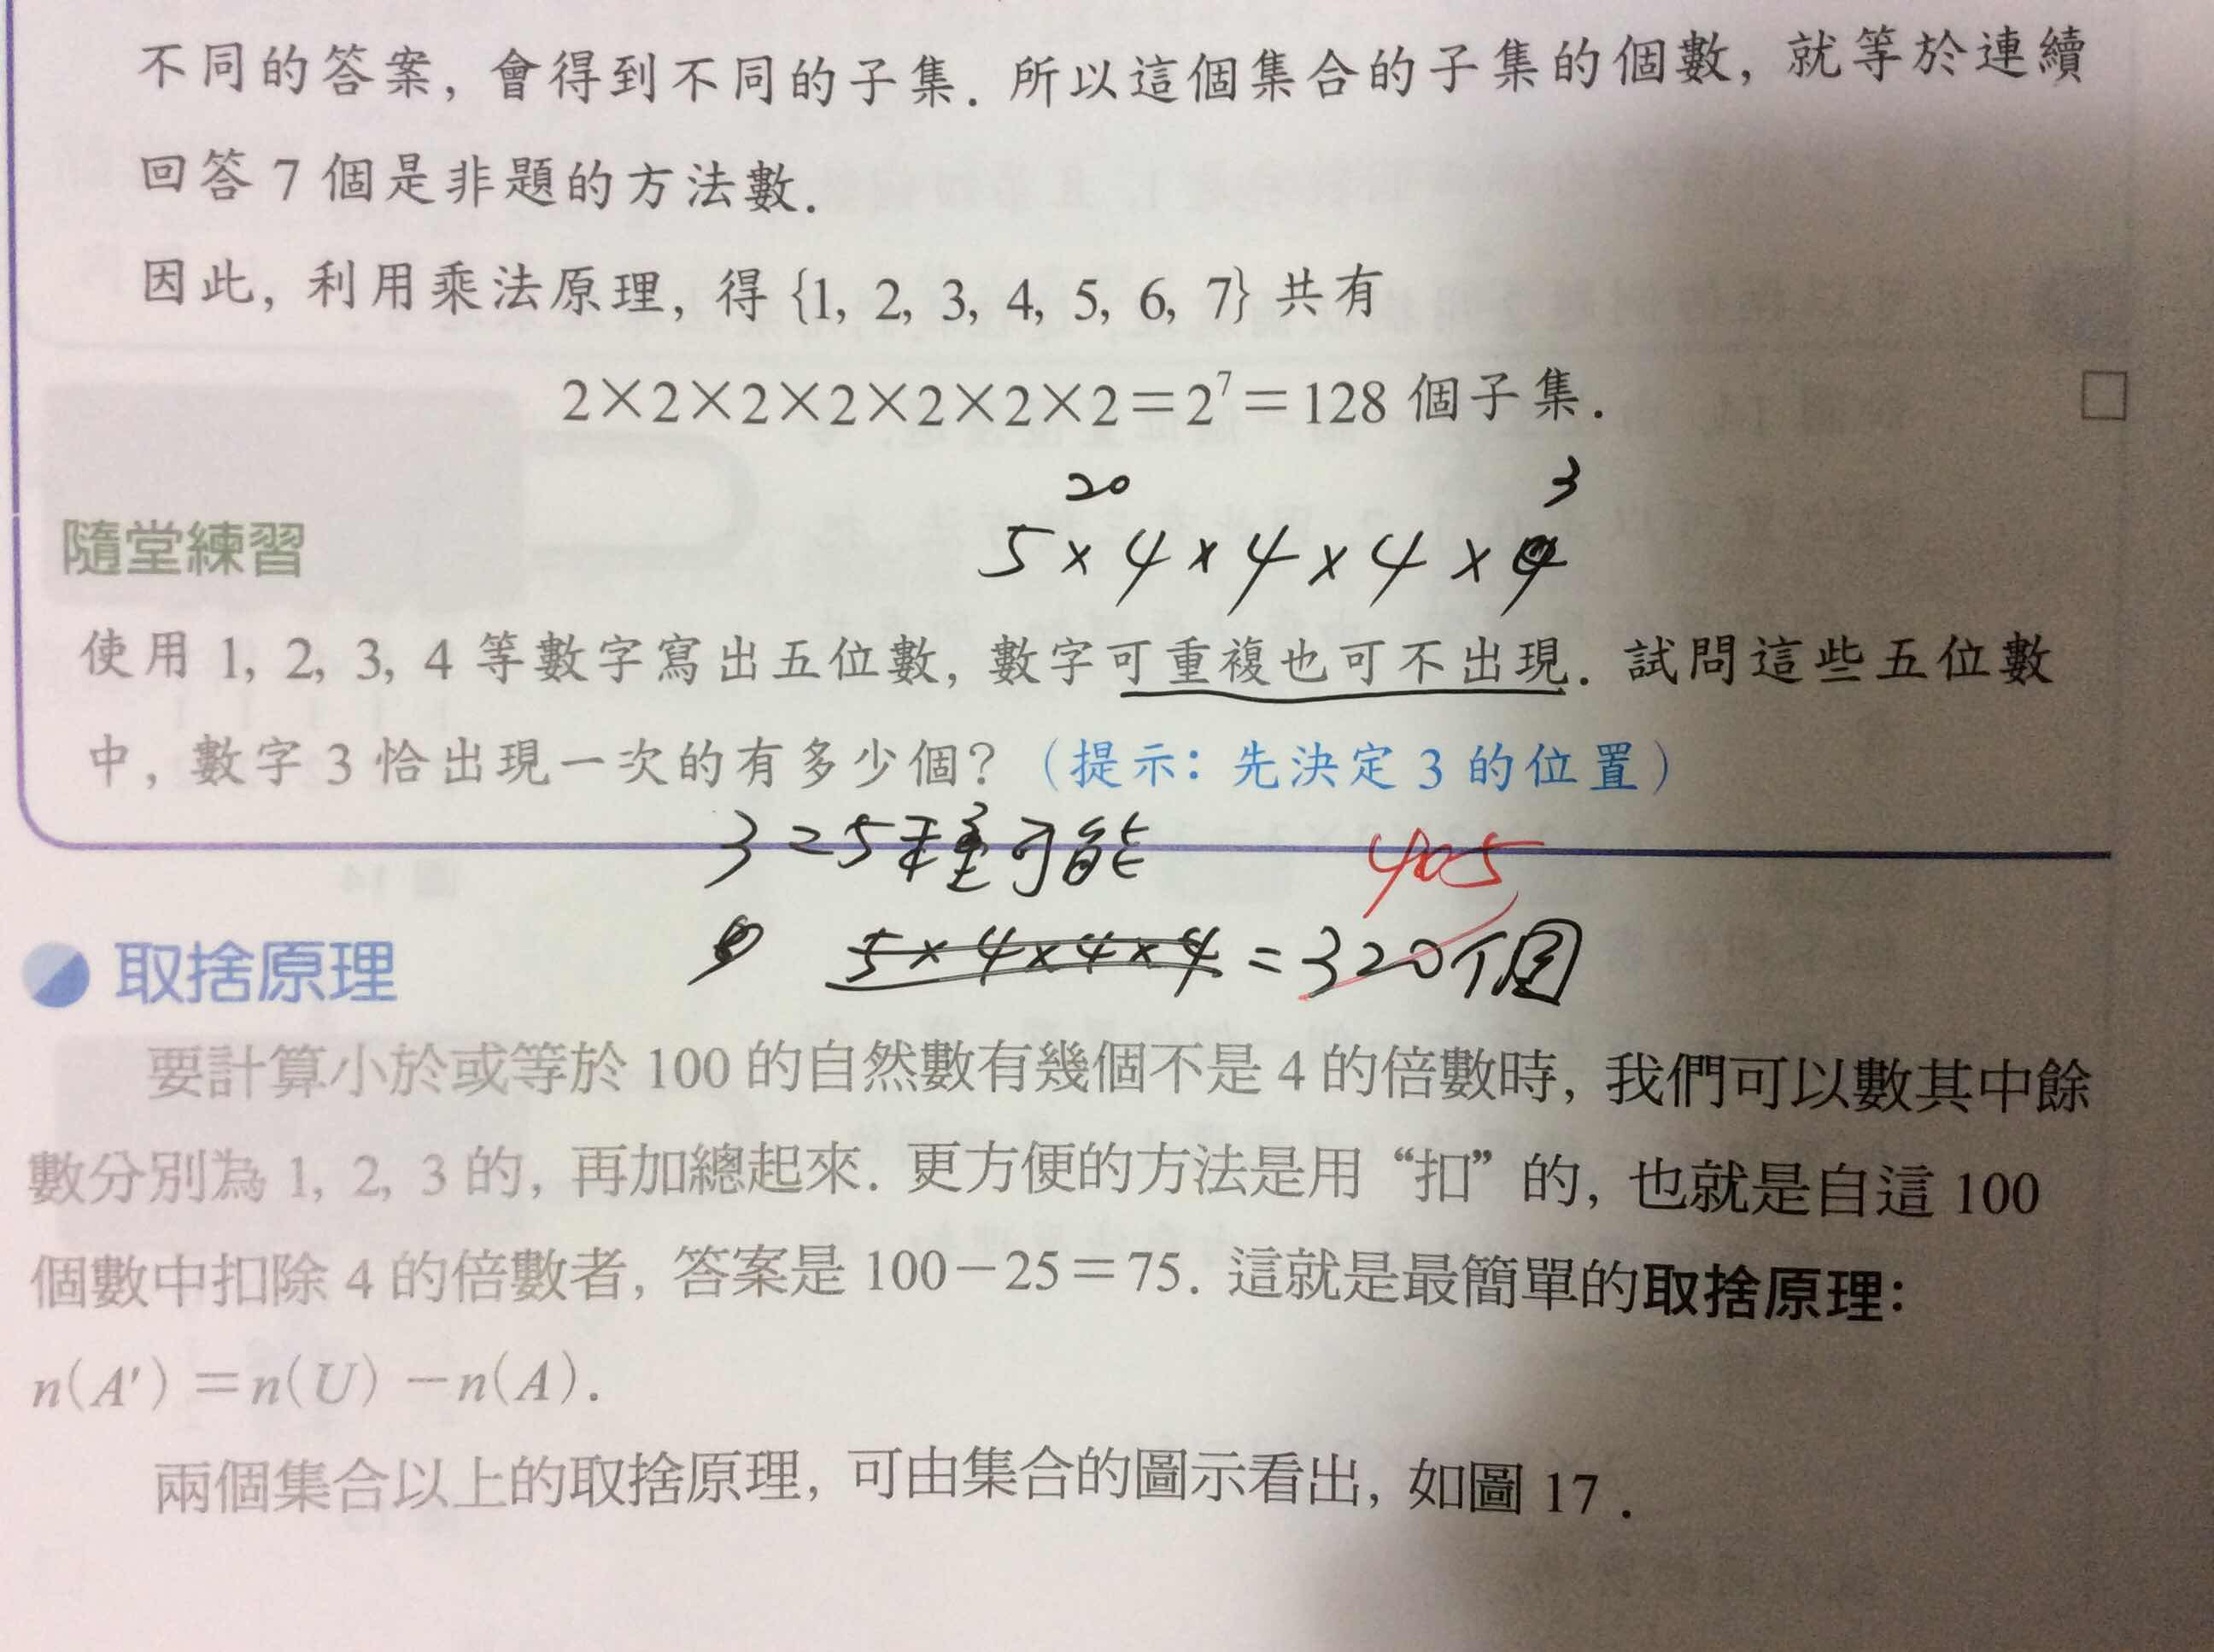 不同的答案, 會得到不同的子集. 所以這個集合的子集的個數, 就等於連續
回答 7 個是非題的方法數.
因此, 利用乘法原理, 得 {1, 2, 3, 4, 5, 6, 7} 共有
2×2×2×2×2×2×2=2⁷=128 個子集.
20 3
5×4×4×4×
隨堂練習
使用 1, 2, 3, 4 等數字寫出五位數, 數字可重複也可不出現. 試問這些五位數
中, 數字 3 恰出現一次的有多少個? (提示: 先決定 3 的位置)
3 = 5種可能
405
5×4×4×4 = 320個
取捨原理
要計算小於或等於 100 的自然數有幾個不是 4 的倍數時, 我們可以數其中餘
數分別為 1, 2, 3 的, 再加總起來. 更方便的方法是用 “扣” 的, 也就是自這 100
個數中扣除 4 的倍數者, 答案是 100-25=75. 這就是最簡單的取捨原理:
n(A')=n(U)-n(A).
兩個集合以上的取捨原理, 可由集合的圖示看出, 如圖 17 .